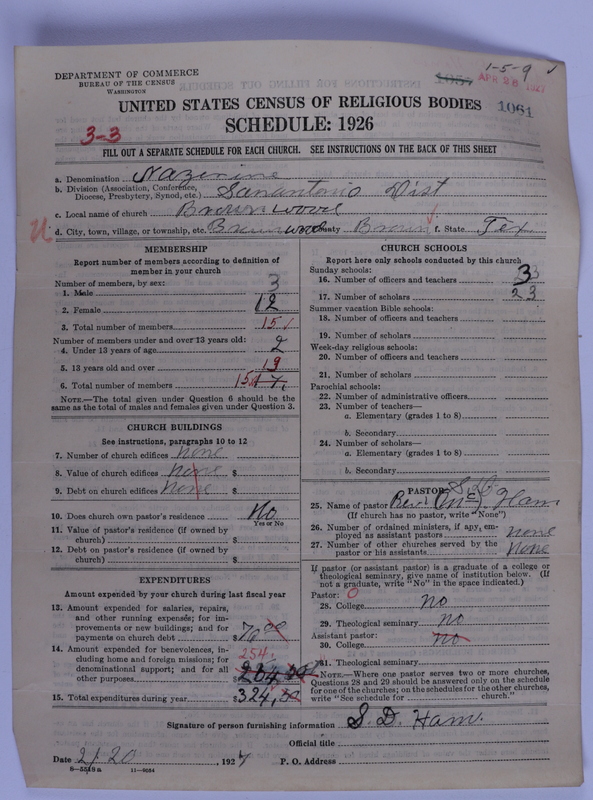 DEPARTMENT OF COMMERCE
BUREAU OF THE CENSUS
WASHINGTON
1-5-9 ✓
APR 28 1927
1061
UNITED STATES CENSUS OF RELIGIOUS BODIES
SCHEDULE: 1926
3-3
FILL OUT A SEPARATE SCHEDULE FOR EACH CHURCH. SEE INSTRUCTIONS ON THE BACK OF THIS SHEET
a. Denomination Nazerine
b. Division (Association, Conference, Diocese, Presbytery, Synod, etc.) Sanantonio Dist
c. Local name of church Brownwood
d. City, town, village, or township, etc. Brownwood County Brown f. State Tex
MEMBERSHIP
Report number of members according to definition of
member in your church
Number of members, by sex:
1. Male 3
2. Female 12
3. Total number of members 15
Number of members under and over 13 years old:
4. Under 13 years of age 2
5. 13 years old and over 13
6. Total number of members 15
NOTE.—The total given under Question 6 should be the
same as the total of males and females given under Question 3.
CHURCH BUILDINGS
See instructions, paragraphs 10 to 12
7. Number of church edifices none
8. Value of church edifices none $
9. Debt on church edifices none $
10. Does church own pastor's residence No
Yes or No
11. Value of pastor's residence (if owned by
church) $
12. Debt on pastor's residence (if owned by
church) $
EXPENDITURES
Amount expended by your church during last fiscal year
13. Amount expended for salaries, repairs,
and other running expense; for im-
provements or new buildings; and for
payments on church debt $ 70 00
14. Amount expended for benevolences, in-
cluding home and foreign missions; for
denominational support; and for all
other purposes $ 254
15. Total expenditures during year $ 324,00
CHURCH SCHOOLS
Report here only schools conducted by this church
Sunday schools:
16. Number of officers and teachers 3
17. Number of scholars 23
Summer vacation Bible schools:
18. Number of officers and teachers
19. Number of scholars
Week-day religious schools:
20. Number of officers and teachers
21. Number of scholars
Parochial schools:
22. Number of administrative officers
23. Number of teachers—
a. Elementary (grades 1 to 8)
b. Secondary
24. Number of scholars—
a. Elementary (grades 1 to 8)
b. Secondary
PASTOR
25. Name of pastor Rev. S. D. Ham
(If church has no pastor, write "None")
26. Number of ordained ministers, if any, em-
ployed as assistant pastors none
27. Number of other churches served by the
pastor or his assistants none
If pastor (or assistant pastor) is a graduate of a college or
theological seminary, give name of institution below. (If
not a graduate, write "No" in the space indicated.)
Pastor: 0
28. College no
29. Theological seminary no
Assistant pastor:
30. College no
31. Theological seminary
NOTE.—Where one pastor serves two or more churches,
Questions 28 and 29 should be answered only on the schedule
for one of the churches; on the schedules for the other churches,
write "See schedule for church."
Signature of person furnishing information S. D. Ham.
Official title
Date 2/20, 1927 P. O. Address
8—5518a 11—9034